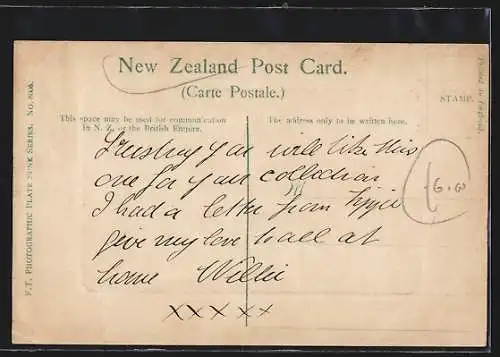 New Zealand Post Card.
(Carte Postale.)
This space may be used for communication
in N. Z. or the British Empire.
The address only to be written here.
STAMP.
F.T. PHOTOGRAPHIC PLATE SUNK SERIES. No. 808.
Trusting you will like this
one for your collection
I had a letter from
give my love to all at
home Willie
xxxxx
6.00